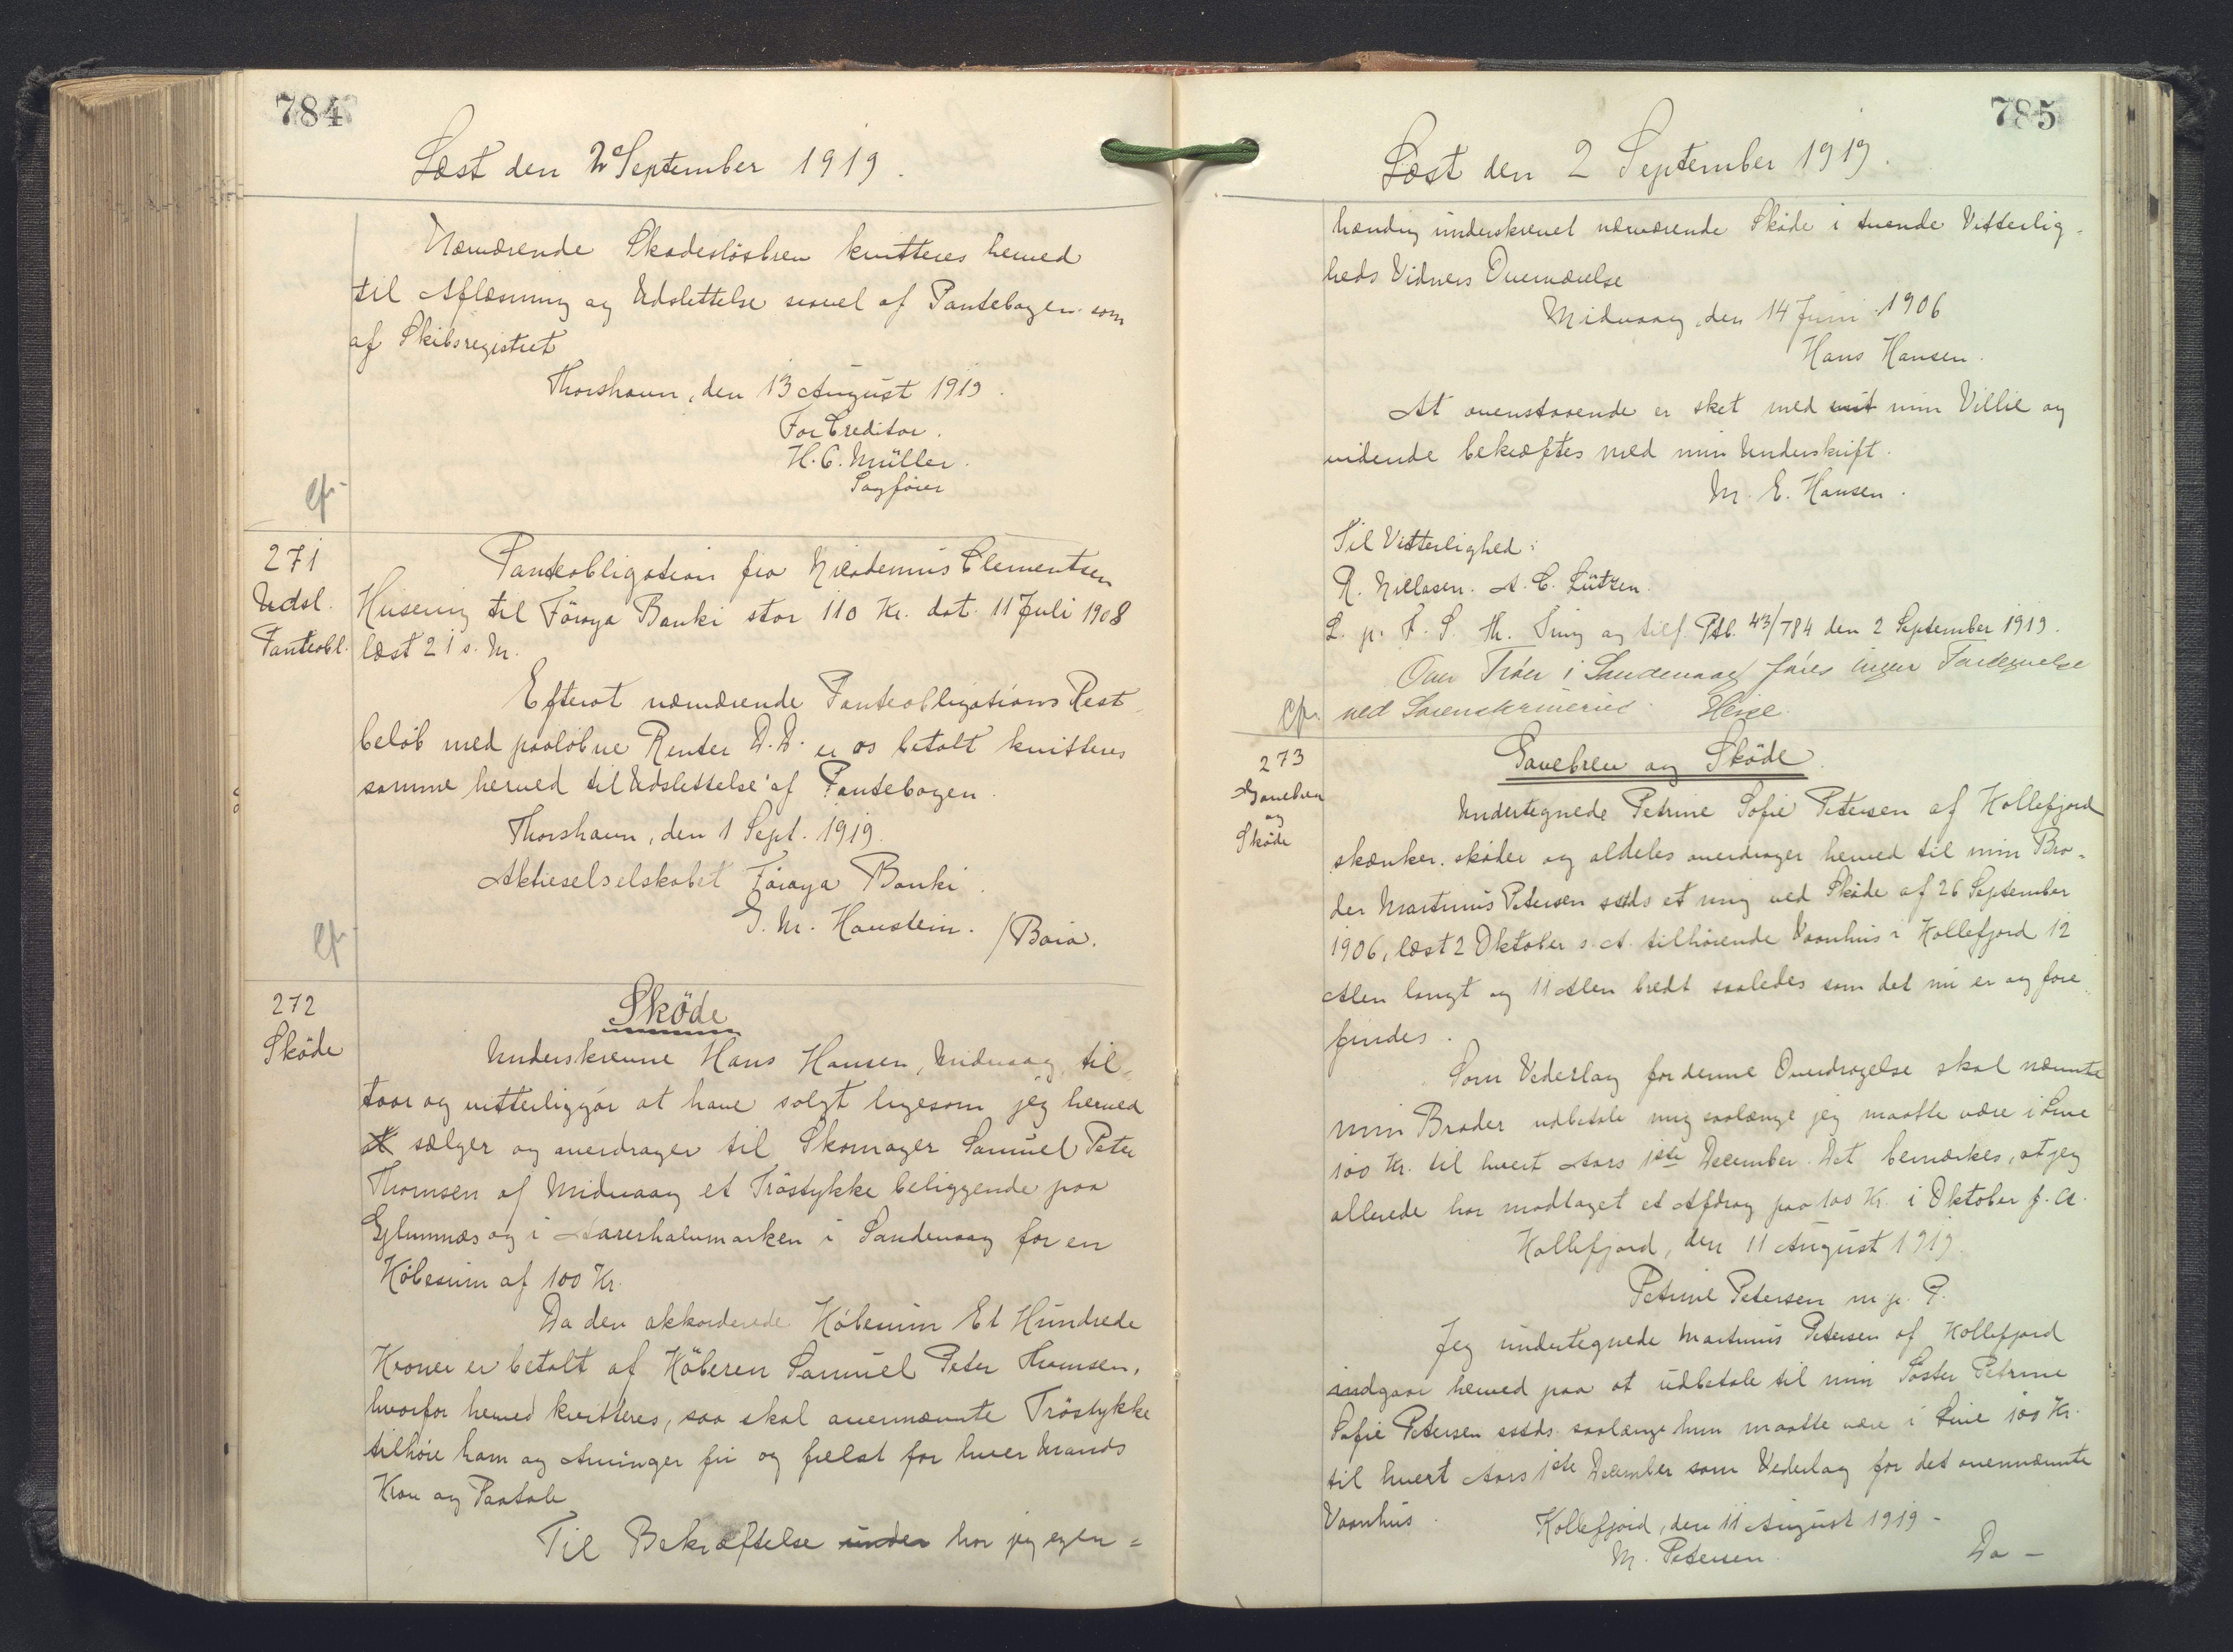 784
Læst den 2 September 1919.
Nærværende Skadesløsbrev kvitteres herved
til Aflæsning og Udslettelse saavel af Pantebogen som
af Skibsregistret
Thorshavn, den 13 August 1919.
For Creditor.
H. C. Müller.
Sagfører
cfr.
271
Udsl.
Panteobl.
Panteobligation fra Nikodemus Clementsen
Husevig til Föroya Banki stor 110 Kr. dat. 11 Juli 1908
læst 21 s. M.
Efterat nærværende Panteobligations Rest
beløb med paaløbne Renter D.D. er os betalt kvitteres
samme herved til Udslettelse af Pantebogen.
Thorshavn, den 1 Sept. 1919.
Aktieselselskabet Föroya Banki.
/Baia.
cfr.
272
Sköde
Sköde
Underskrevne Hans Hansen, Midvaag, til-
staar og vitterliggör at have solgt ligesom jeg herved
sælger og overdrager til Skomager Samuel Peter
Thomsen af Midvaag et Tröstykke beliggende paa
og i i Sandevaag for en
Köbesum af 100 Kr.
Da den akkorderede Köbesum Et Hundrede
Kroner er betalt af Köberen Samuel Peter Thomsen,
hvorfor herved kvitteres, saa skal ovennævnte Tröstykke
tilhöre ham og Arvinger fri og frelst for hver Mands
Krav og Paatale
Til Bekræftelse under har jeg egen=
785
Læst den 2 September 1919.
hændig underskrevet nærværende Sköde i tvende Vitterlig-
heds Vidners Overværelse
Midvaag, den 14 Juni 1906
Hans Hansen.
At ovenstaaende er sket med mit min Villie og
vidende bekræftes med min Underskrift.
M. E. Hansen.
Til Vitterlighed:
R. Niclasen. A. C. Lützen.
L. p. F. S. Th. Ting og tilf Ptb. 43/784 den 2 September 1919.
Over Tröer i Sandevaag föres ingen Fortegnelse
ved Sorenskriveriet.
cfr.
273
Gavebrev
og
Sköde
Gavebrev og Sköde.
Undertegnede Petrine Sofie Petersen af Kollefjord
skænker, sköder og aldeles overdrager herved til min Bro-
der Martinus Petersen sstds et mig ved Sköde af 26 September
1906, læst 2 Oktober s. A. tilhörende Vaanhus i Kollefjord 12
Alen langt og 11 Alen bredt saaledes som det nu er og fore-
findes.
Som Vederlag for denne Overdragelse skal nævnte
min Broder udbetale mig saalænge jeg maatte være i Live
100 Kr. til hvert Aars 1ste December. Det bemærkes, at jeg
allerede har modtaget et Afdrag paa 100 Kr. i Oktober f. A.
Kollefjord, den 11 August 1919.
Petrine Petersen m. p. P.
Jeg undertegnede Martinus Petersen af Kollefjord
indgaar herved paa at udbetale til min Søster Petrine
Sofie Petersen sstds. saalænge hun maatte være i Live 100 Kr.
til hvert Aars 1ste December som Vederlag for det ovennævnte
Vaanhus.
Kollefjord, den 11 August 1919.-
M. Petersen.
Da -